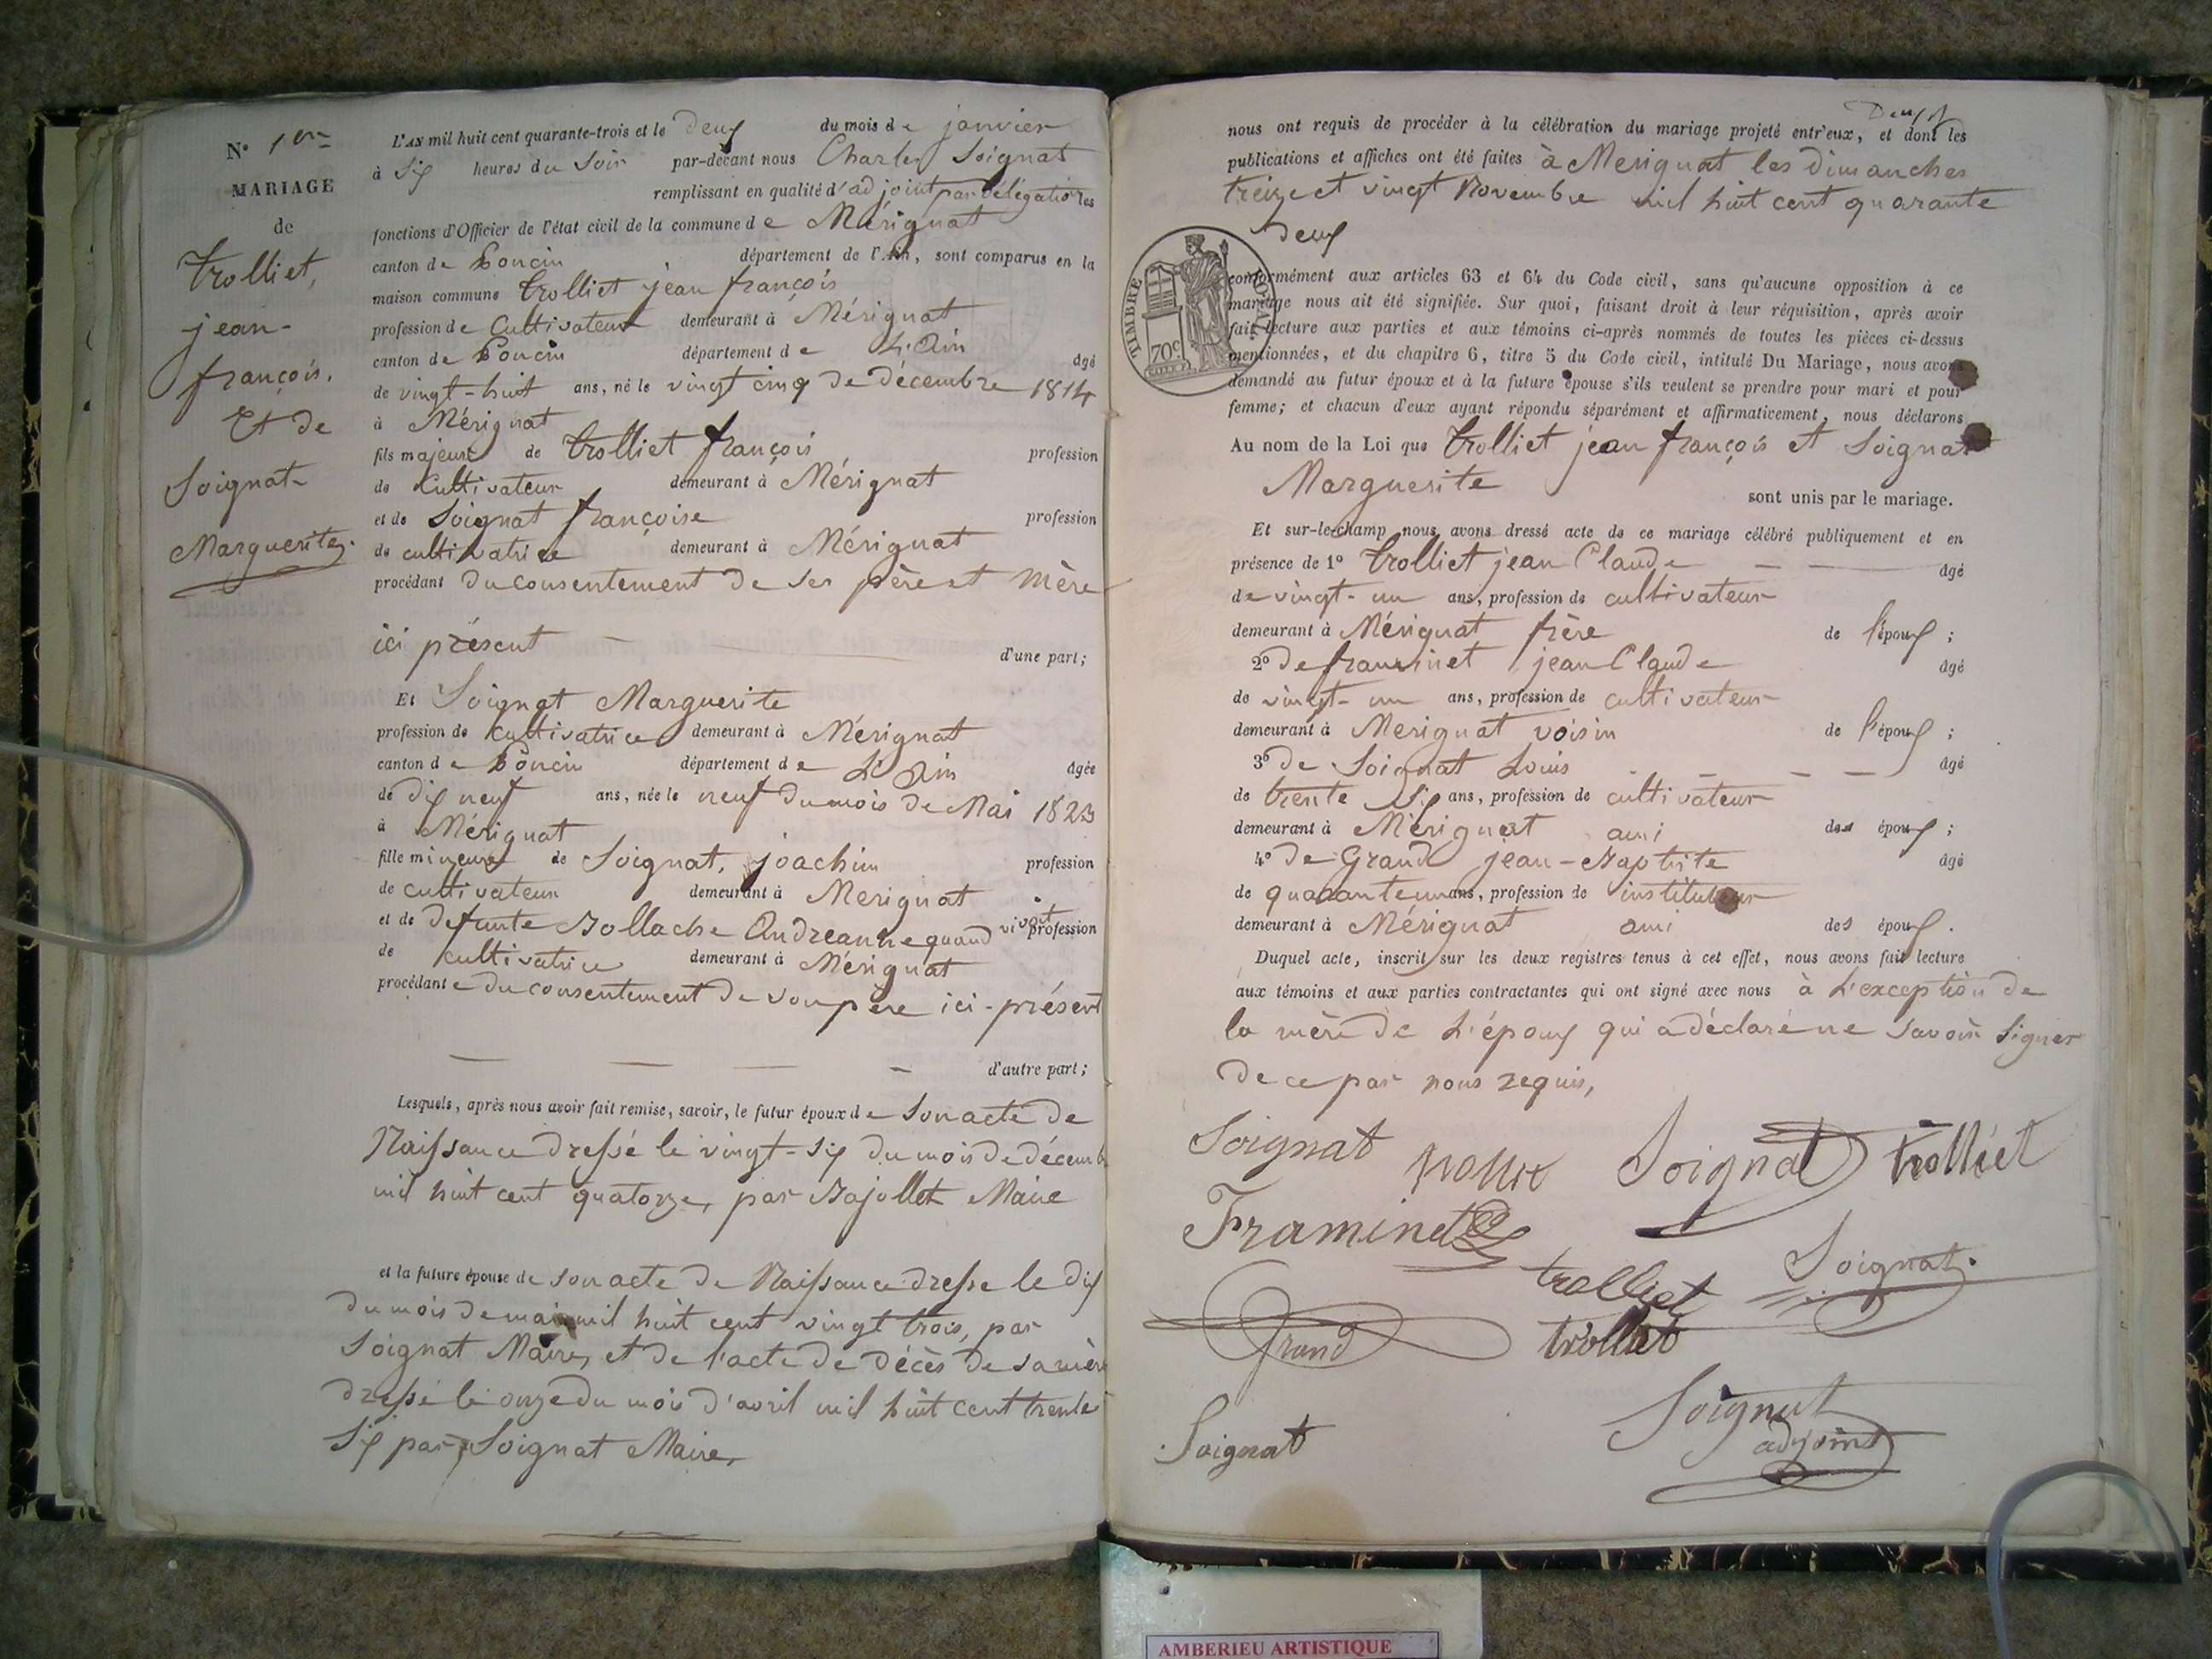 N° 1er
MARIAGE
de
trolliet,
jean-
françois.
Et de
Soignat-
Marguerite.
L'AN mil huit cent quarante-trois et le deux du mois de janvier
à Six heures du Soir par-devant nous Charles Soignat
remplissant en qualité d'adjoint par délégation les
fonctions d'Officier de l'état civil de la commune de Mérignat
canton de Poncin département de l'Ain, sont comparus en la
maison commune trolliet jean françois
profession de Cultivateur demeurant à Mérignat
canton de Poncin département de L'Ain âgé
de vingt-huit ans, né le vingt cinq de décembre 1814
à Mérignat
fils majeur de trolliet françois profession
de Cultivateur demeurant à Mérignat
et de Soignat françoise profession
de cultivatrice demeurant à Mérignat
procédant du consentement de ses père et mère
ici présent d'une part;
Et Soignat Marguerite
profession de Cultivatrice demeurant à Mérignat
canton de Poncin département de L'Ain âgée
de dix neuf ans, née le neuf du mois de Mai 1823
à Mérignat
fille mineure de Soignat, joachim profession
de cultivateur demeurant à Merignat
et de defunte Andreanne quand vivait profession
de cultivatrice demeurant à Mérignat
procédante du consentement de son père ici-présent
d'autre part;
Lesquels, après nous avoir fait remise, savoir, le futur époux de son acte de
Naissance dressé le vingt-six du mois de décemb
mil huit cent quatorze, par Bajollet Maire
et la future épouse de son acte de Naissance dresse le dix
du mois de mai mil huit cent vingt trois, par
Soignat Maire, et de l'acte de décès de sa mère
dressé le onze du mois d'avril mil huit cent trente
Six par Soignat Maire,
Deux
nous ont requis de procéder à la célébration du mariage projeté entr'eux, et dont les
publications et affiches ont été faites à Merignat les dimanches
treize et vingt Novembre mil huit cent quarante
deux
TIMBRE ROYAL
70c
conformément aux articles 63 et 64 du Code civil, sans qu'aucune opposition à ce
mariage nous ait été signifiée. Sur quoi, faisant droit à leur réquisition, après avoir
fait lecture aux parties et aux témoins ci-après nommés de toutes les pièces ci-dessus
mentionnées, et du chapitre 6, titre 5 du Code civil, intitulé Du Mariage, nous avons
demandé au futur époux et à la future épouse s'ils veulent se prendre pour mari et pour
femme; et chacun d'eux ayant répondu séparément et affirmativement, nous déclarons
Au nom de la Loi que trolliet jean françois et Soignat
Marguerite sont unis par le mariage.
Et sur-le-champ nous avons dressé acte de ce mariage célébré publiquement et en
présence de 1° trolliet jean Claude âgé
de vingt-un ans, profession de cultivateur
demeurant à Mérignat frère de l'époux;
2° de framinet jean Claude âgé
de vingt-un ans, profession de cultivateur
demeurant à Merignat voisin de l'époux;
3° de Soignat Louis âgé
de trente Six ans, profession de cultivateur
demeurant à Mérignat ami des époux;
4° de Grand jean-Baptiste âgé
de quarante un ans, profession de instituteur
demeurant à Mérignat ami des époux.
Duquel acte, inscrit sur les deux registres tenus à cet effet, nous avons fait lecture
aux témoins et aux parties contractantes qui ont signé avec nous à L'exception de
la mère de L'époux qui a déclaré ne savoir Signer
de ce par nous requis,
Soignat Soignat trolliet
Framinet
trolliet Soignat.
Grand trolliet
Soignat Soignat
adjoint
AMBERIEU ARTISTIQUE